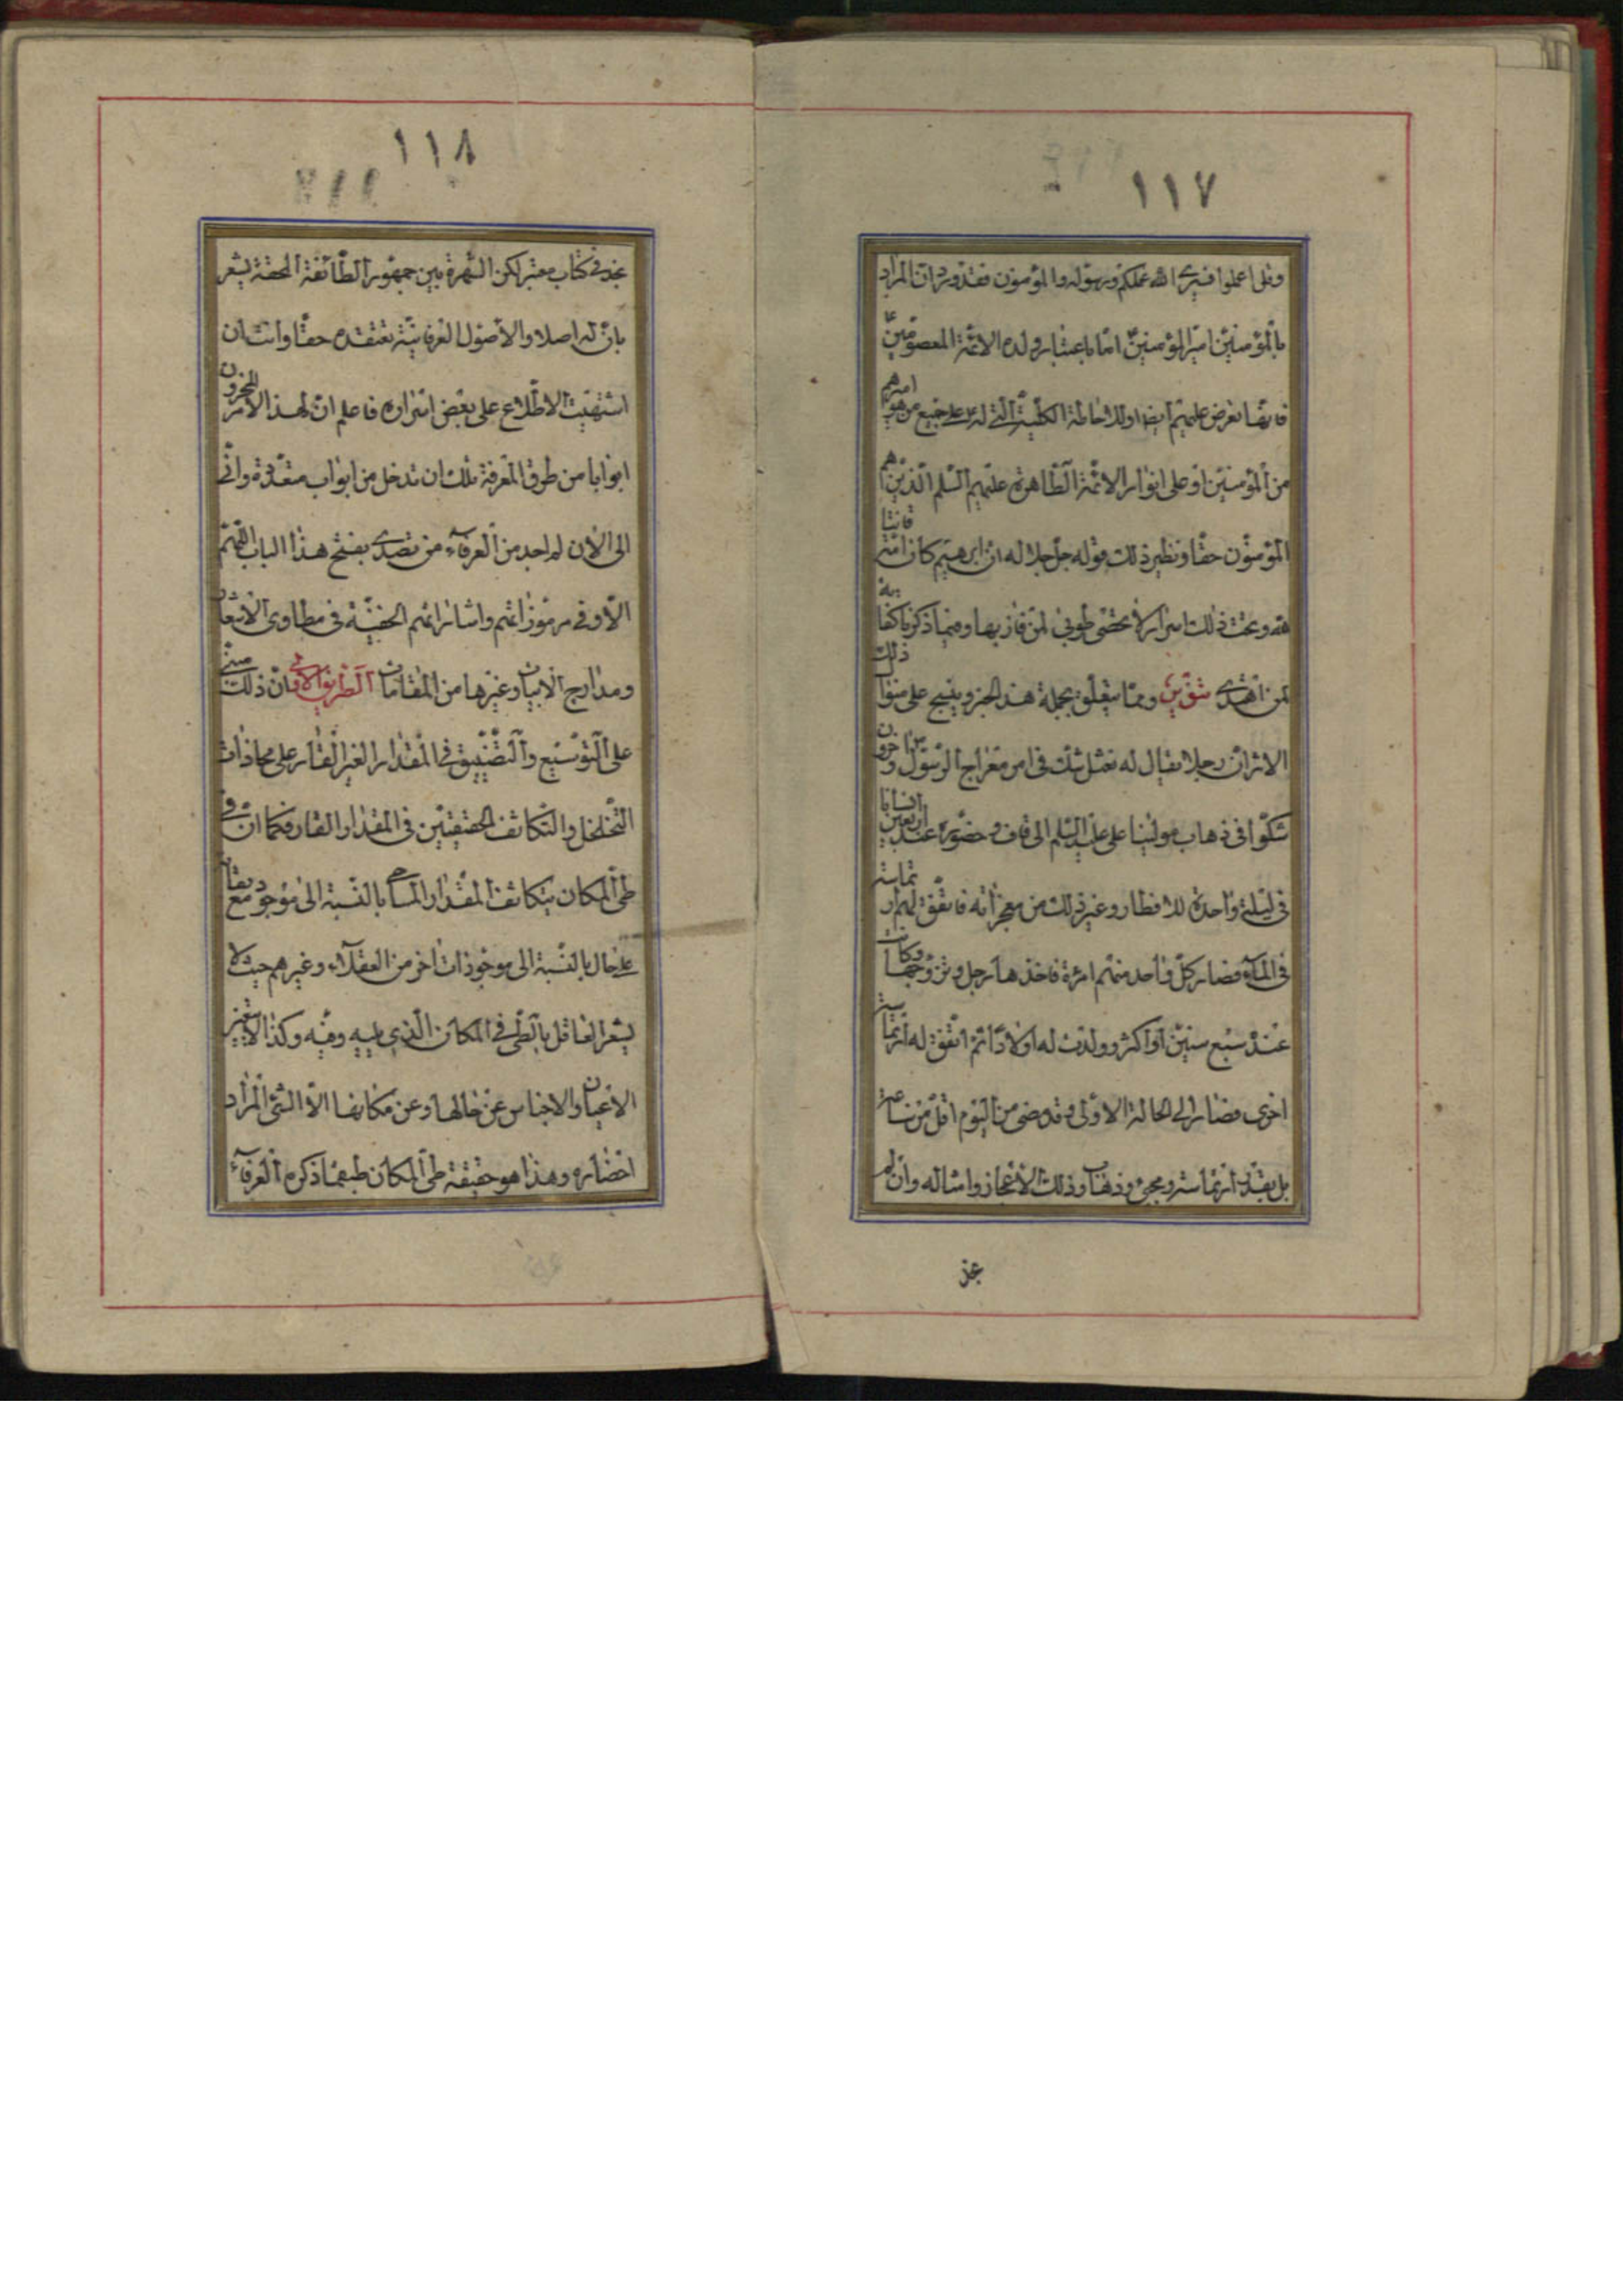 ١١٧
وقل اعملوا فسيرى الله عملكم ورسوله والمؤمنون فقد ورد ان المراد
بالمؤمنين امير المؤمنين ع اما باعتبار ولده الائمة المعصومين
فانها تعرض عليهم ايضا اوللاحاطة الكلية التى له ع على جميع من هو اميرهم
من المؤمنين او على انوار الائمة الطاهرة عليهم السلم الذين هم
المؤمنون حقا ونظير ذلك قوله جل جلاله ان ابرهيم كان امة قانتا
لله وتحت ذلك اسرار لا تحصى طوبى لمن فاز بها وفيما ذكرنا كفاية
لمن اهتدى تنوير ومما يتعلق بجملة هذا الخبر وينسج على منوال ذلك
الاثر ان رجلا يقال له نعثل شك فى امر معراج الرسول ص واخرون
شكوا فى ذهاب مولينا على عليه السلم الى قاف وحضوره عند اربعين انسانا
فى ليلة واحدة للافطار وغير ذلك من معجزاته فاتفق لهم ارتماسة
فى الماء فصار كل واحد منهم امرءة فاخذها رجل وتزوجها وكانت
عنده سبع سنين او اكثر وولدت له اولادا ثم اتفق له ارتماسة
اخرى فصار الى الحالة الاولى وقد مضى من اليوم اقل من ساعة
بل بقدر ارتماسة ومجئ وذهاب وذلك الاعجاز وامثاله وان لم
نجد
١١٨
نجد فى كتاب معتبر لكن الشهرة بين جمهور الطائفة المحقة يشعر
بان له اصلا والاصول العرفانية تعتقده حقا وانت ان
اشتهيت الاطلاع على بعض اسراره فاعلم ان لهذا الامر المخزون
ابوابا من طرق المعرفة فلك ان تدخل من ابواب متعددة وانى
الى الان لم اجد من العرفاء من تصدى بفتح هذا الباب اللهم
الا وفى مرموزاتهم واشاراتهم الخفية فى مطاوى الاشعار
ومدارج الابيات وغيرها من المقامات الطريق الاولى فان ذلك مبنى
على التوسيع والتضييق فى المقدار الغير القار على محاذات
التخلخل والتكاثف الحقيقيين فى المقدار القار فكما ان فى
طى المكان يتكاثف المقدار المساحى بالنسبة الى موجود مع بقائه
على حال بالنسبة الى موجودات اخر من العقلاء وغيرهم حيث لا
يشعر العاقل بالطى فى المكان الذى يليه وفيه وكذا لا يتغير
الاعيان والاجناس عن حالها وعن مكانها الا الشئ المراد
احضاره وهذا هو حقيقة طى المكان طبقما ذكره العرفاء